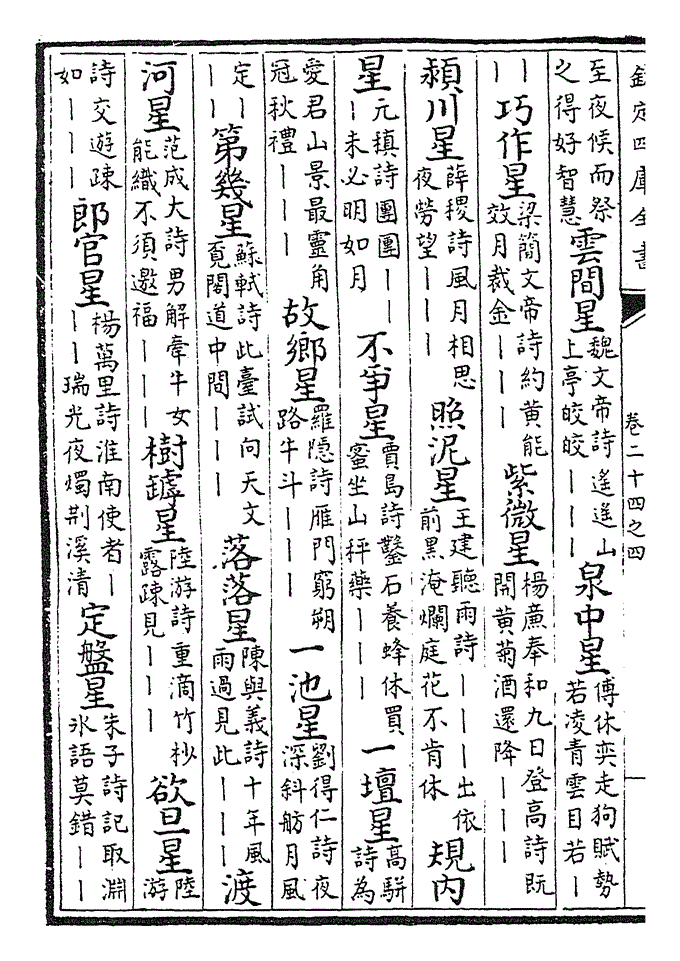 欽定四庫全書 卷二十四之四
至夜候而祭之得好智慧 雲間星 魏文帝詩遙遙山上亭皎皎｜｜｜ 泉中星 傅休奕走狗賦勢若凌青雲目若｜
｜｜ 巧作星 梁簡文帝詩約黃能效月裁金｜｜｜ 紫微星 楊亷奉和九日登高詩既開黃菊酒還降｜｜｜
潁川星 薛稷詩風月相思夜勞望｜｜｜ 照泥星 王建聽雨詩｜｜｜出依前黑淹爛庭花不肯休 規内
星 元稹詩團團｜｜｜未必明如月 不爭星 賈島詩鑿石養蜂休買蜜坐山秤藥｜｜｜ 一壇星 高駢詩為
愛君山景最靈角冠秋禮｜｜｜ 故鄉星 羅隱詩雁門窮朔路牛斗｜｜｜ 一池星 劉得仁詩夜深斜舫月風
定｜｜｜ 第幾星 蘇軾詩此臺試向天文覓閣道中間｜｜｜ 落落星 陳與義詩十年風雨過見此｜｜｜ 渡
河星 范成大詩男解牽牛女能織不須邀福｜｜｜ 樹罅星 陸游詩重滴竹杪露疎見｜｜｜ 欲旦星 陸游
詩交遊疎如｜｜｜ 郎官星 楊萬里詩淮南使者｜｜｜瑞光夜燭荆溪清 定盤星 朱子詩記取淵氷語莫錯｜｜